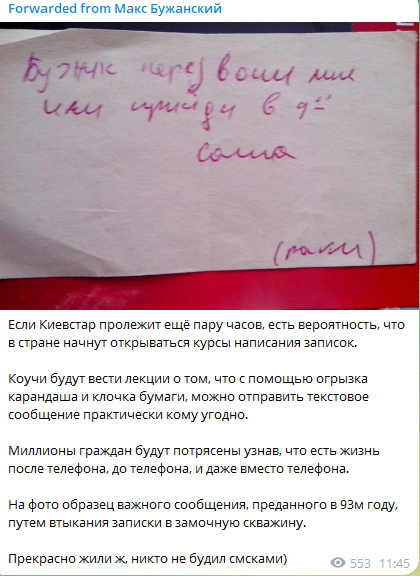 Forwarded from Макс Бужанский
Бужик перезвони мне
или приди в 9⁰⁰
Саша
Если Киевстар пролежит ещё пару часов, есть вероятность, что
в стране начнут открываться курсы написания записок.
Коучи будут вести лекции о том, что с помощью огрызка
карандаша и клочка бумаги, можно отправить текстовое
сообщение практически кому угодно.
Миллионы граждан будут потрясены узнав, что есть жизнь
после телефона, до телефона, и даже вместо телефона.
На фото образец важного сообщения, преданного в 93м году,
путем втыкания записки в замочную скважину.
Прекрасно жили ж, никто не будил смсками)
553 11:45